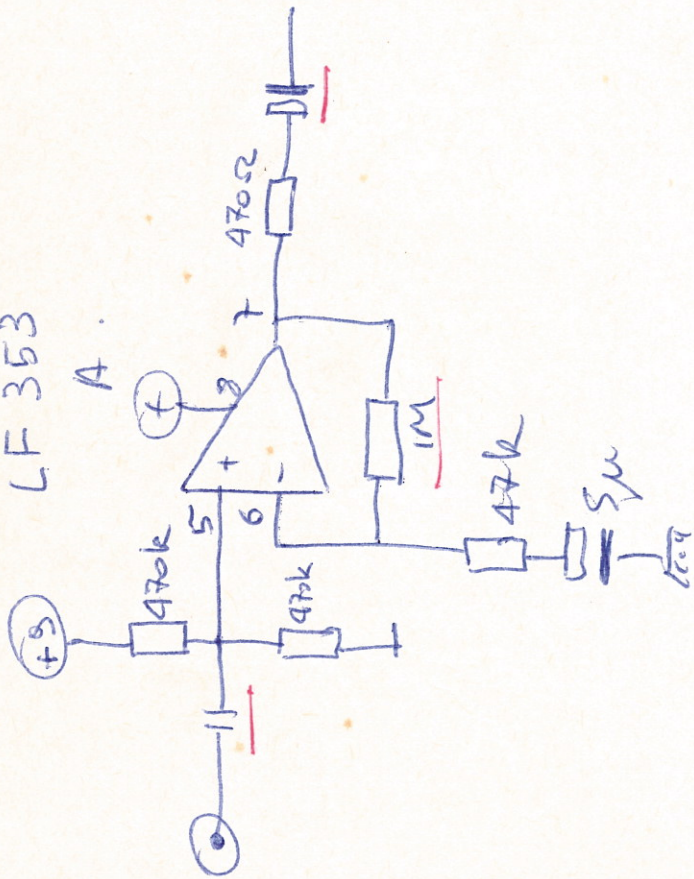 LF 353
A.
+9
470k
470k
5
6
+
-
+
8
7
470Ω
1M
47k
5µ